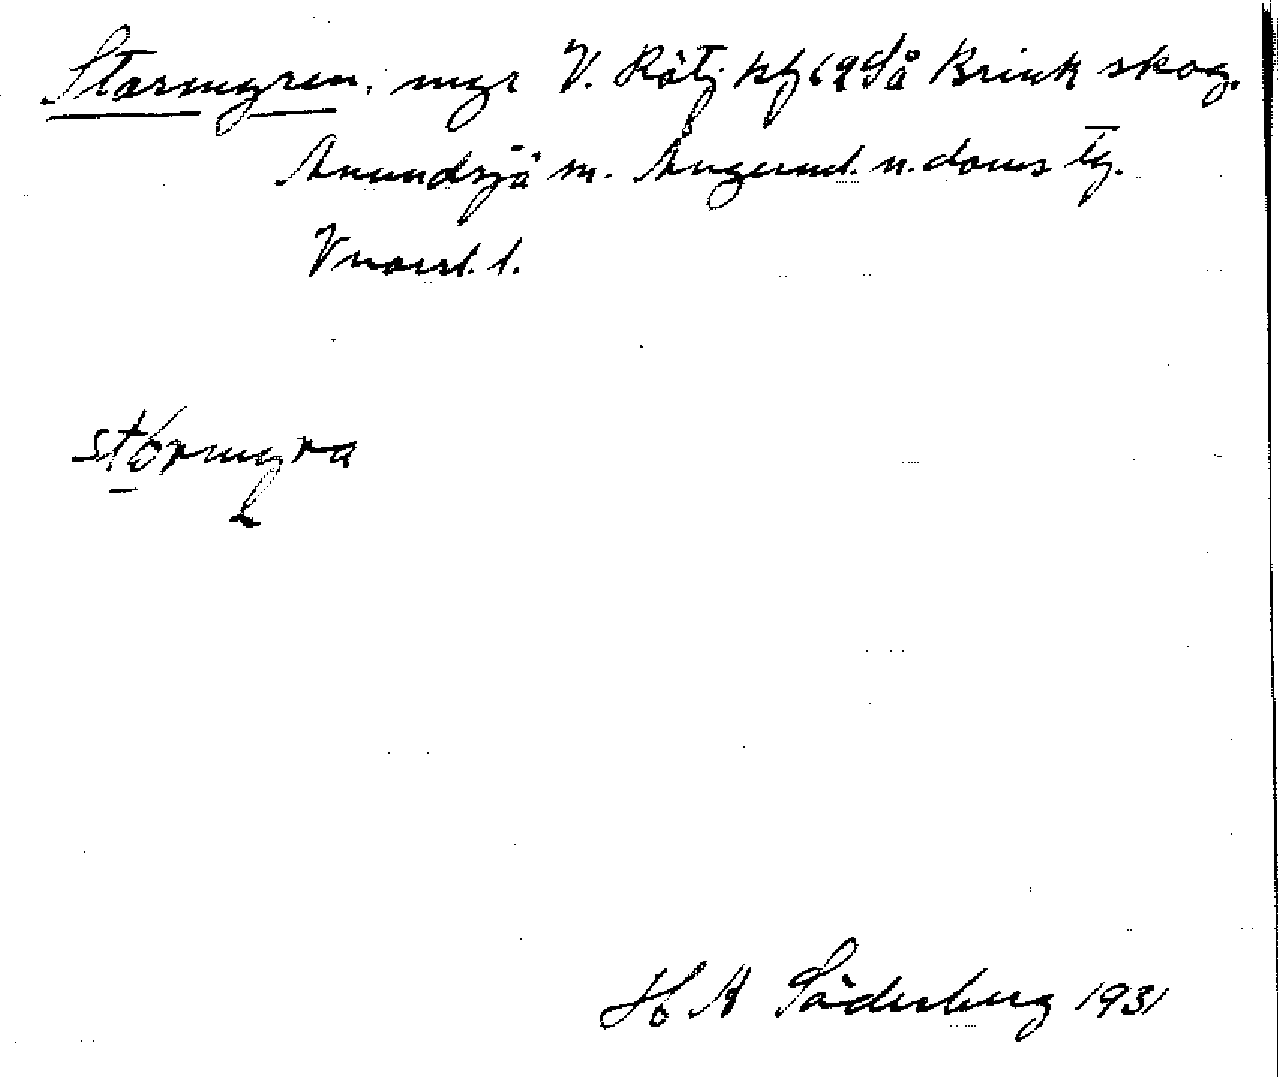 Starmyren, myr V. Råtj. kf 62 Så Brink skog.
Anundsjö sn. Ångerml. n. doms tg.
Vnorrl. l.
stórmyra
H A Söderberg 1931